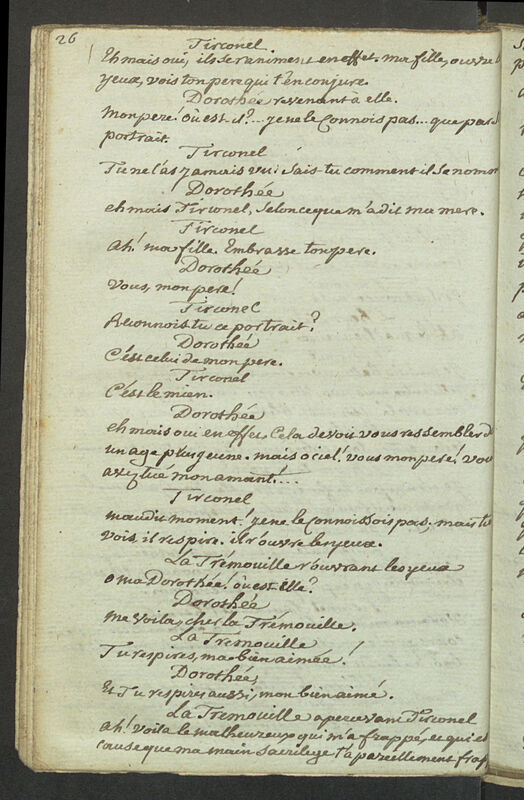 26
Tirconel.
Eh mais oui, ils se raniment en effet. ma fille, ouvre
yeux, vois ton pere qui t'en conjure.
Dorothée revenant à elle.
Mon pere! où est-il?... je ne le connois pas... que par
portrait.
Tirconel
Tu ne l'as jamais vu: sais tu comment il se nomme
Dorothée
eh mais Tirconel, selon ce que m'a dit ma mere.
Tirconel
Ah! ma fille. Embrasse ton pere.
Dorothée
Vous, mon pere!
Tirconel
Reconnois tu ce portrait?
Dorothée
C'est celui de mon pere.
Tirconel
C'est le mien.
Dorothée
eh mais oui en effet. Cela devoit vous ressembler d
un age plus jeune. mais o ciel! vous mon pere! vou
avez tué mon amant!...
Tirconel
maudit moment! je ne le connoissois pas; mais tu
vois, il respire. il r'ouvre les yeux.
La Trémouille r'ouvrant les yeux
o ma Dorothée! où est elle?
Dorothée
me voila, cher la Trémouille.
La Trémouille
Tu respires, ma bien aimée!
Dorothée,
Et Tu respires aussi, mon bien aimé.
La Trémouille apercevant Tirconel
Ah! voila le malheureux qui m'a frappé, et qui est
cause que ma main sacrilege t'a pareillement frap